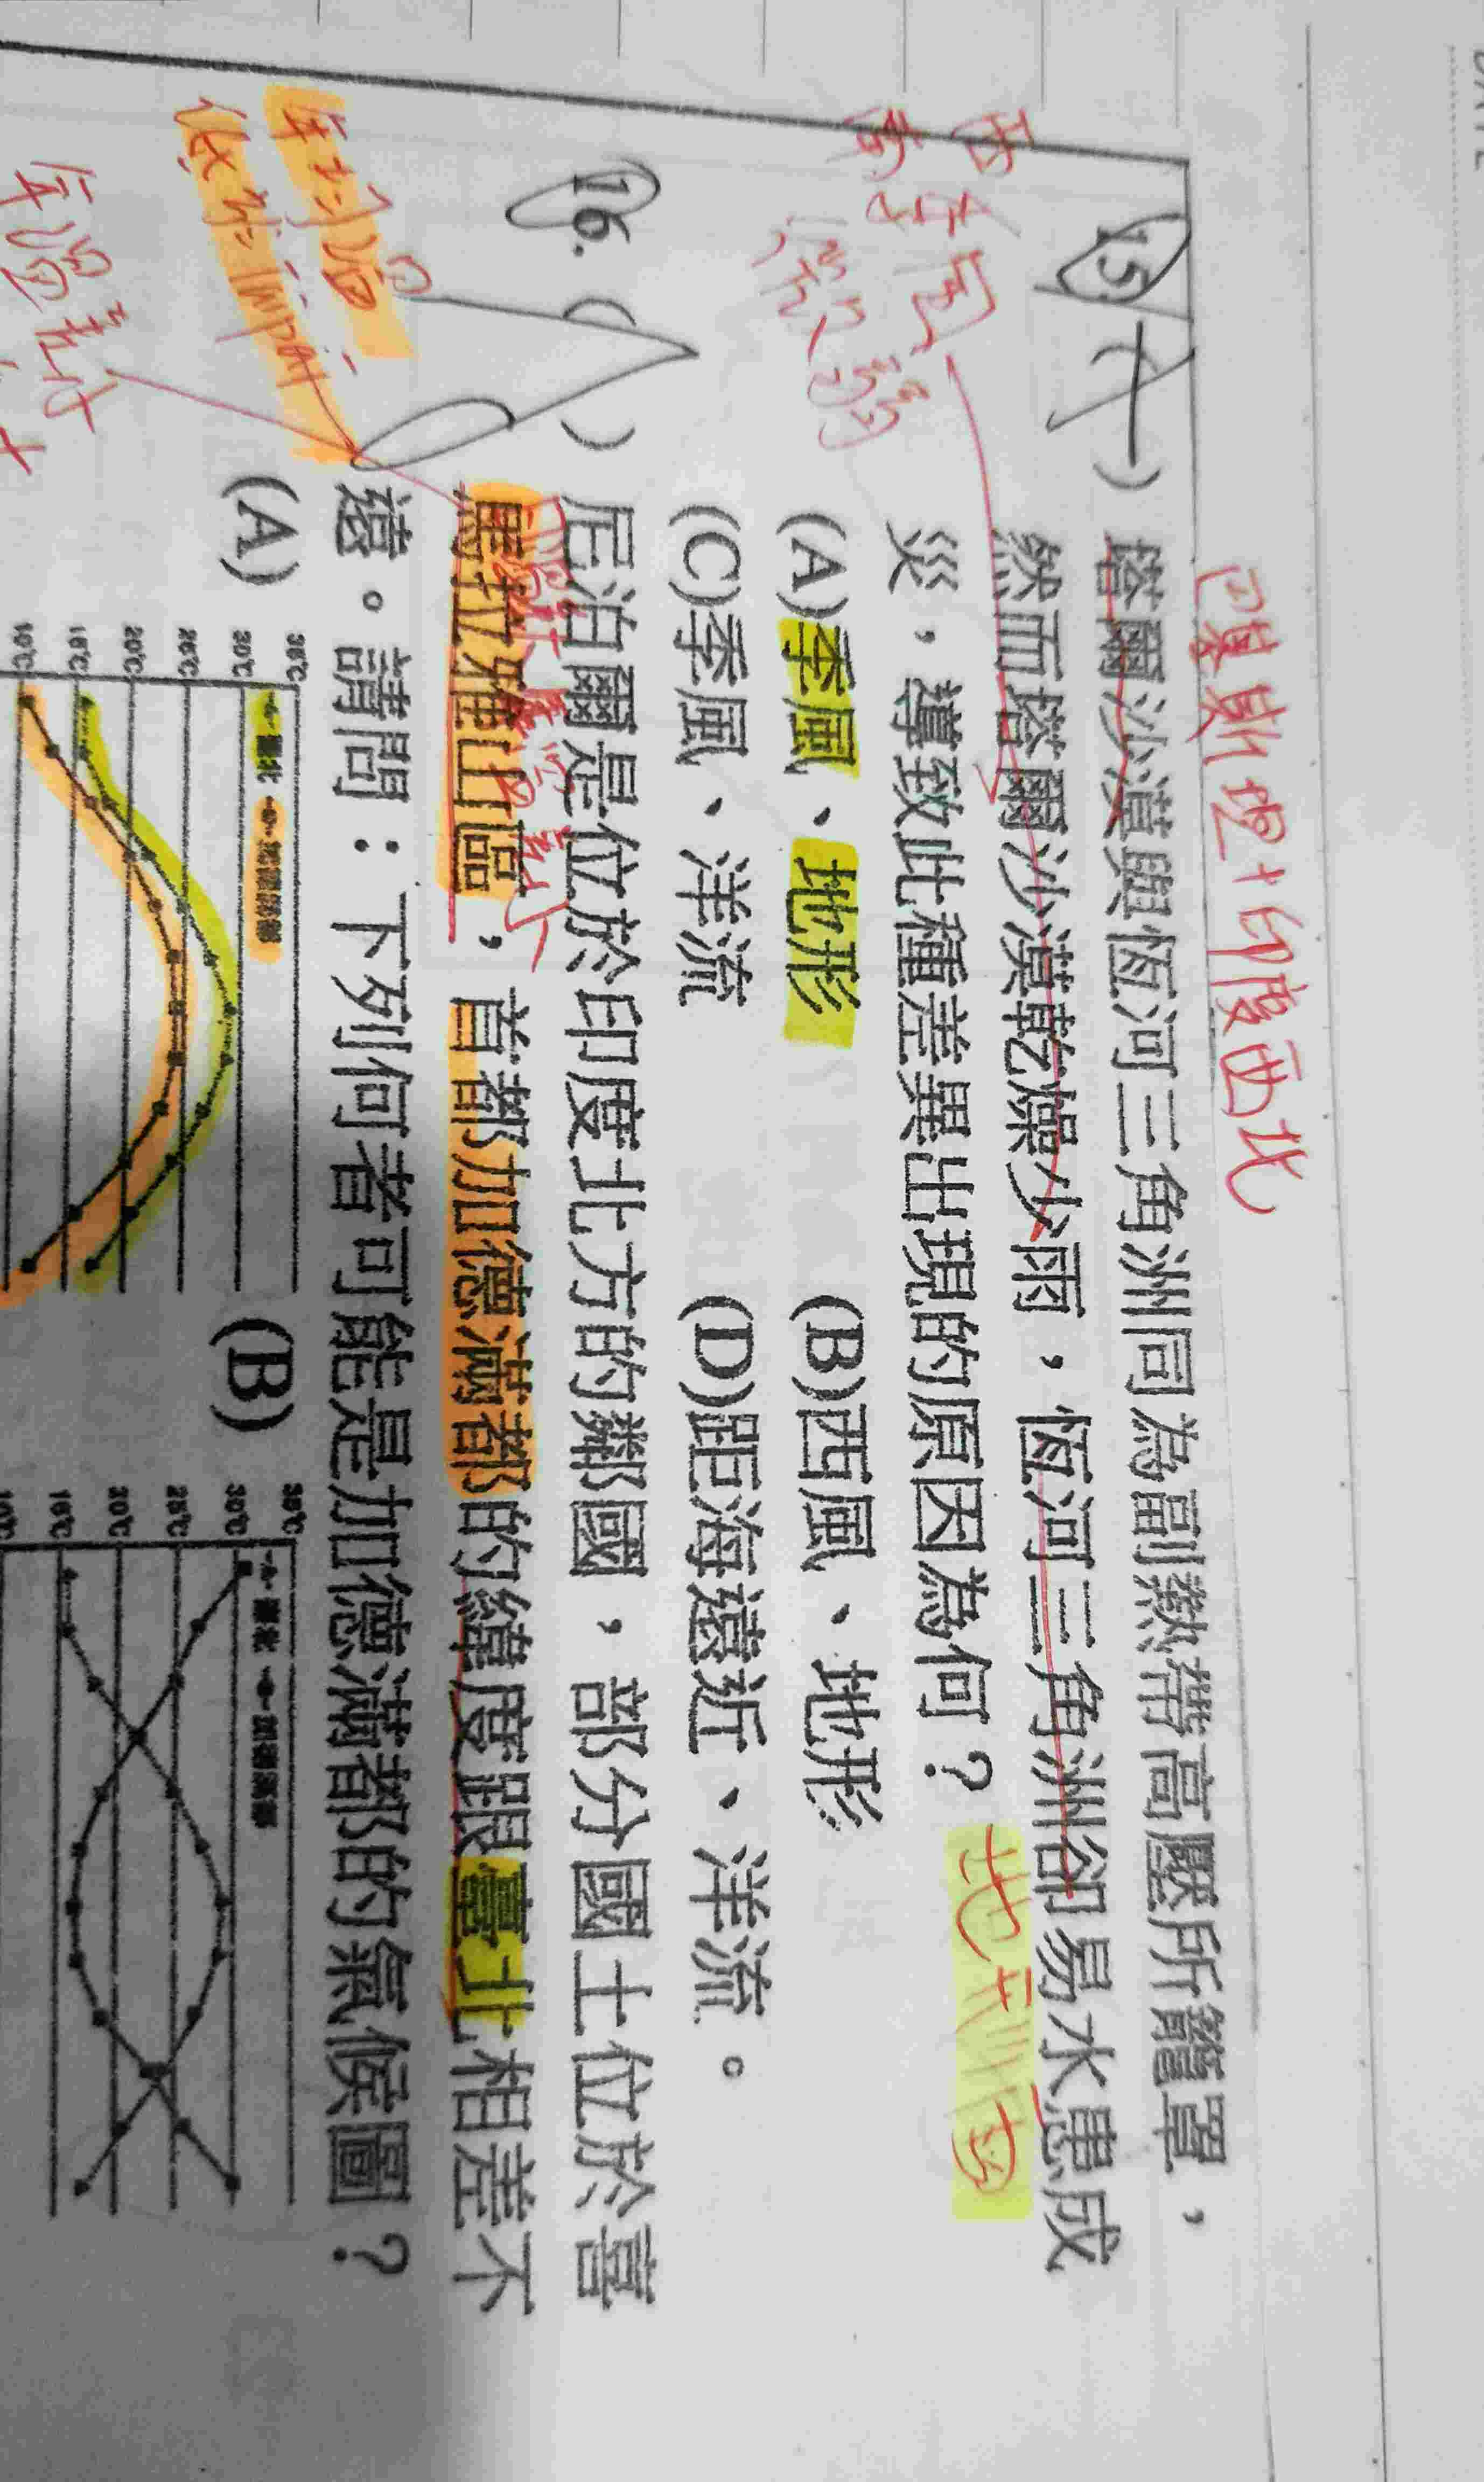 巴基斯坦+印度西北
15. 塔爾沙漠與恆河三角洲同為副熱帶高壓所籠罩，
然而塔爾沙漠乾燥少雨，恆河三角洲卻易水患成
災，導致此種差異出現的原因為何？ 地形雨
西南季風
(A)季風、地形 (B)西風、地形
(C)季風、洋流 (D)距海遠近、洋流。
16. ( ) 尼泊爾是位於印度北方的鄰國，部分國土位於喜
馬拉雅山區，首都加德滿都的緯度跟臺北相差不
遠。請問：下列何者可能是加德滿都的氣候圖？
年均溫
(A) (B)
臺北 加德滿都
35℃
30℃
25℃
20℃
15℃
10℃
臺北 加德滿都
35℃
30℃
25℃
20℃
15℃
10℃